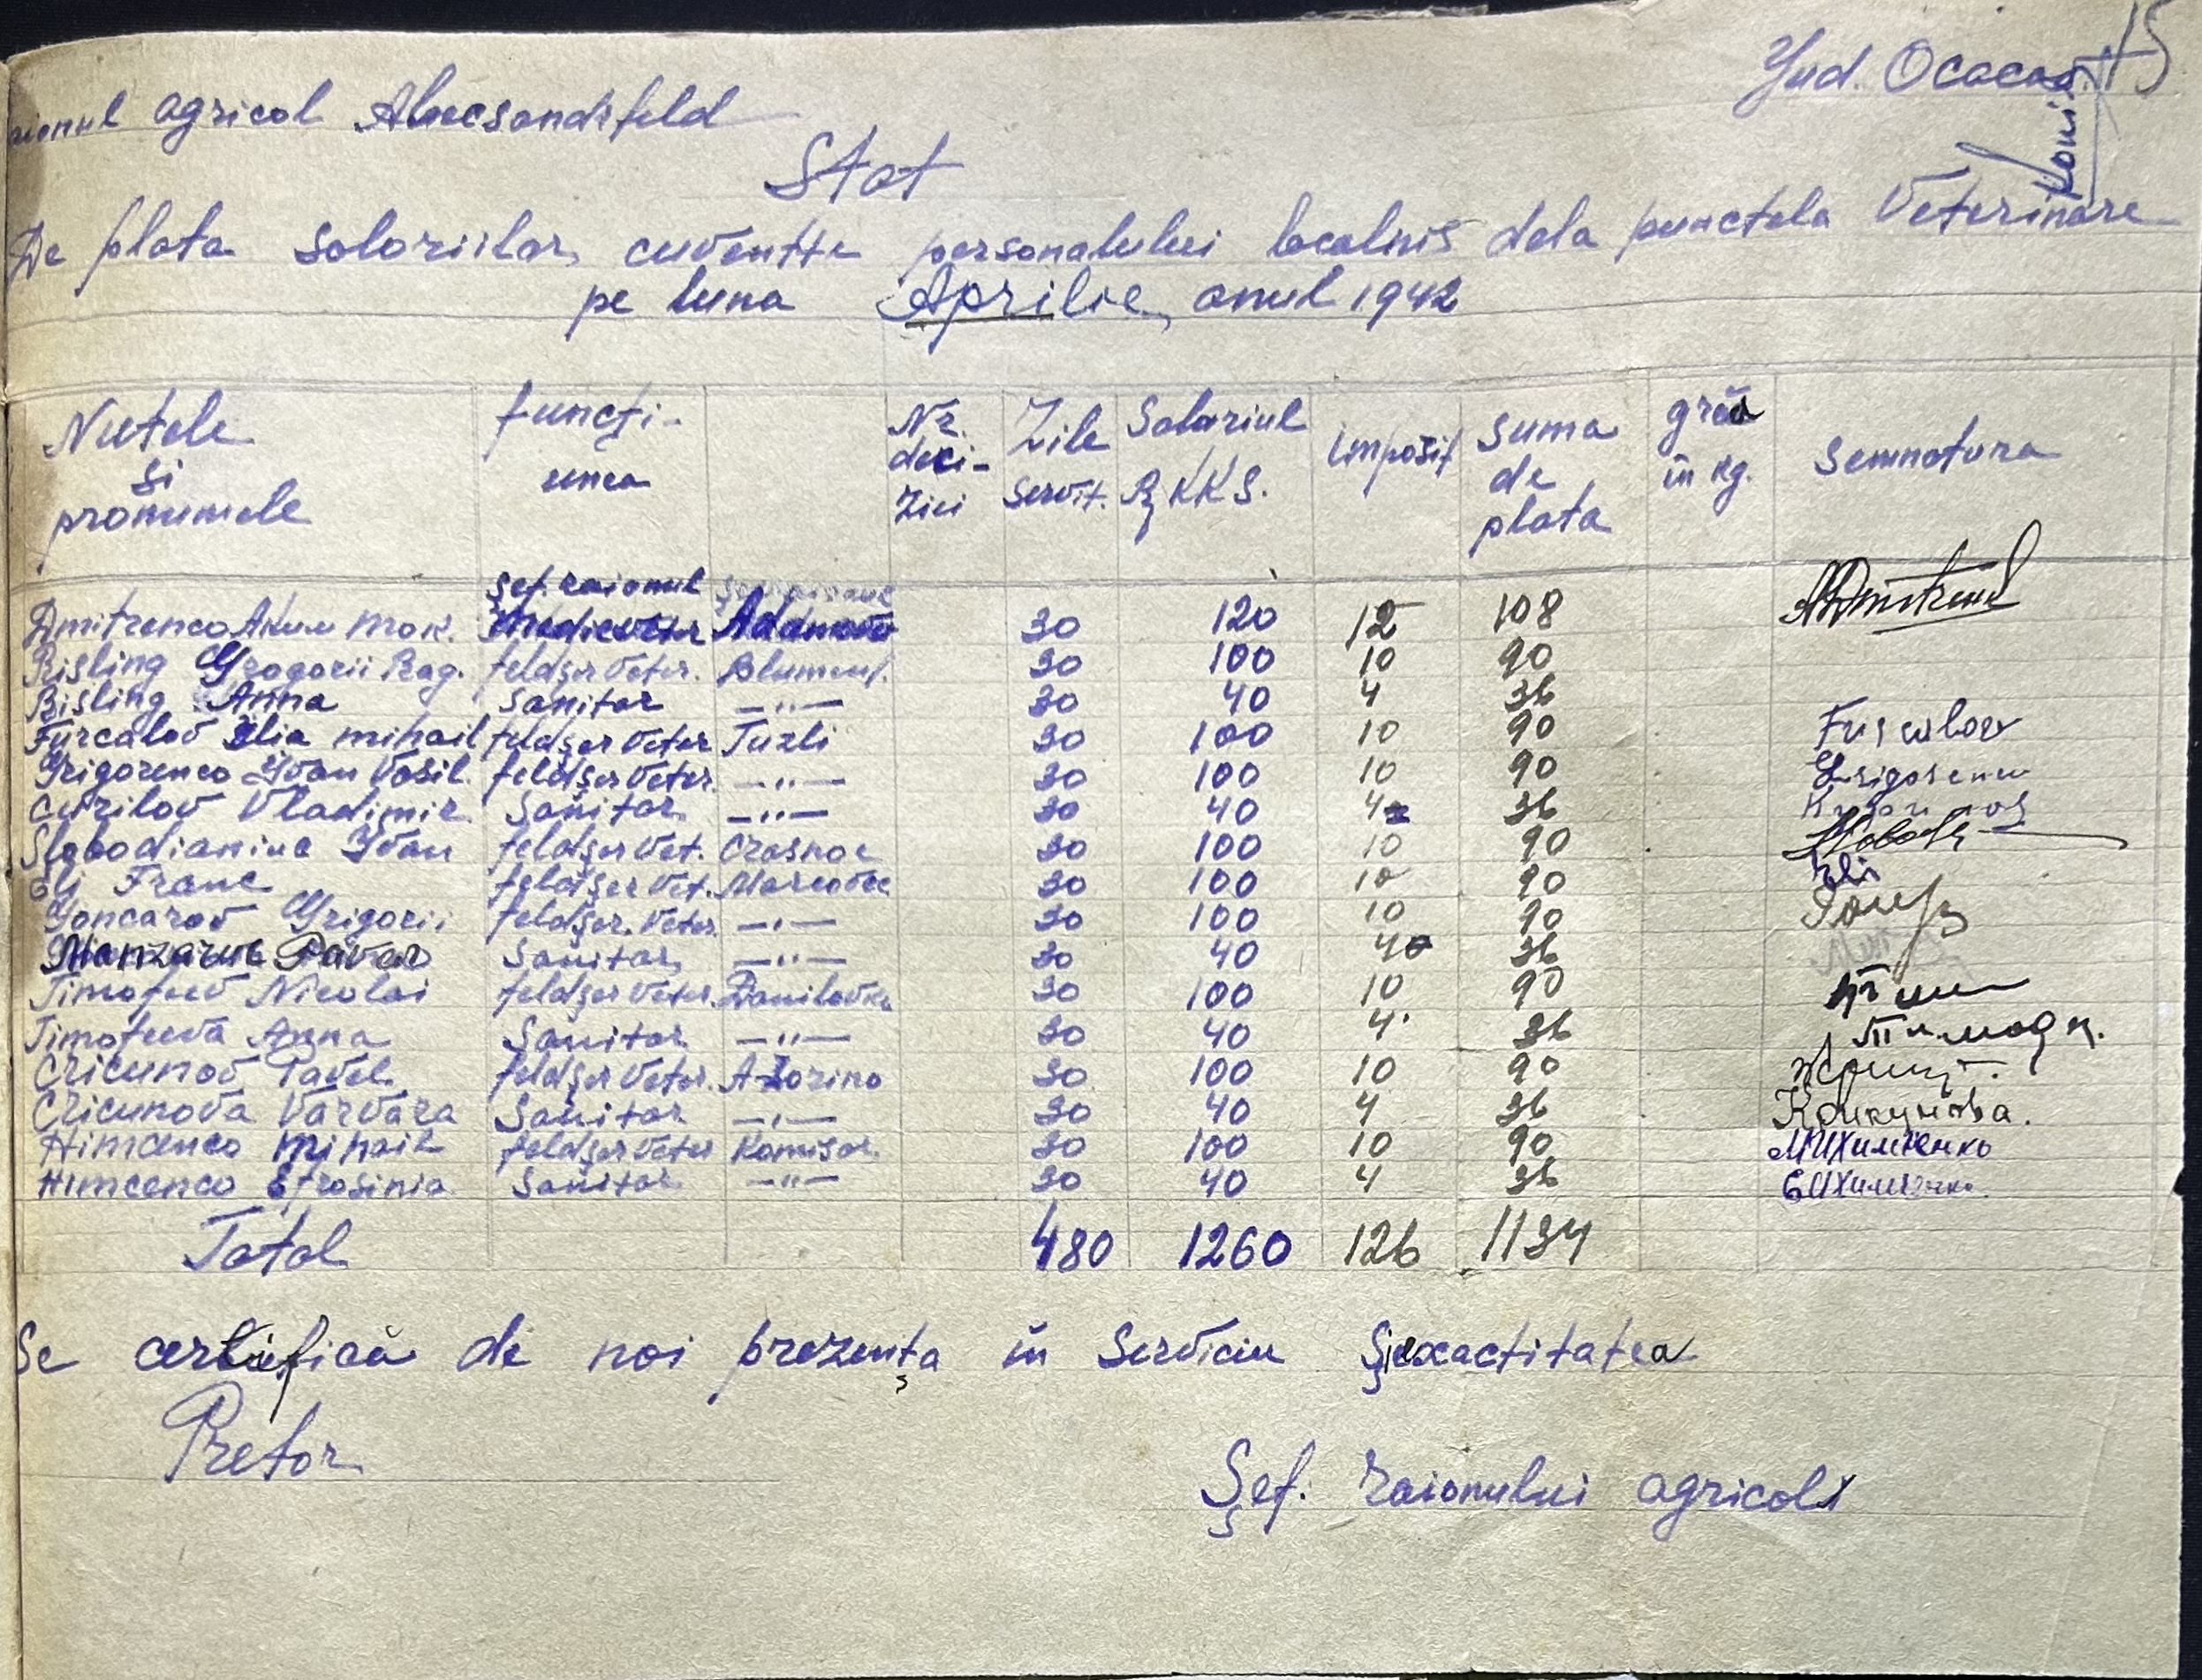 Jud. Ococov 15
raionul agricol Alecsandrfeld
Stat
De plata solariilor cuventte personalului localnis dela punctela Veterinare
pe luna Aprilie, anul 1942
Numele si pronumele functi-unea Nr. deci-zici Zile servit. Solariul RKKS. Imposit suma de plata grâu în kg. semnatura
Dmitrenco Akim Mak. Șef. raionul Adamovo 30 120 12 108
Risling Grogorii Rag. feldșer Veter. Blument. 30 100 10 90
Risling Anna Sanitar —"— 30 40 4 36
Furcalov Ilia mihail feldșer Veter Tuzli 30 100 10 90 Furcalov
Grigorenco Ivan Vasil. feldșer Veter. —"— 30 100 10 90 Grigorenco
Curilov Vladimir Sanitar —"— 30 40 4 36
Slobodianiuc Ivan feldșer Vet. Crasnoe 30 100 10 90
Eli Franc feldșer Vet. Marcovce 30 100 10 90 Eli
Goncarov Grigorii feldșer. Veter. —"— 30 100 10 90
Manzaruc Pavel Sanitar —"— 30 40 4 36
Timofeev Nicolai feldșer Veter. Danilovka 30 100 10 90
Timofeeva Anna Sanitar —"— 30 40 4 36
Cricunov Pavel feldșer Veter. A-Dorino 30 100 10 90
Cricunova Varvara Sanitar —"— 30 40 4 36 Крикунова.
Himcenco Mihail feldșer Veter Komisar. 30 100 10 90 МИХимченко
Himcenco Efrosinia Sanitar —"— 30 40 4 36 ЕИХимченко
Total 480 1260 126 1134
Se certifică de noi prezența în Serviciu și exactitatea
Pretor
Șef. raionului agricol